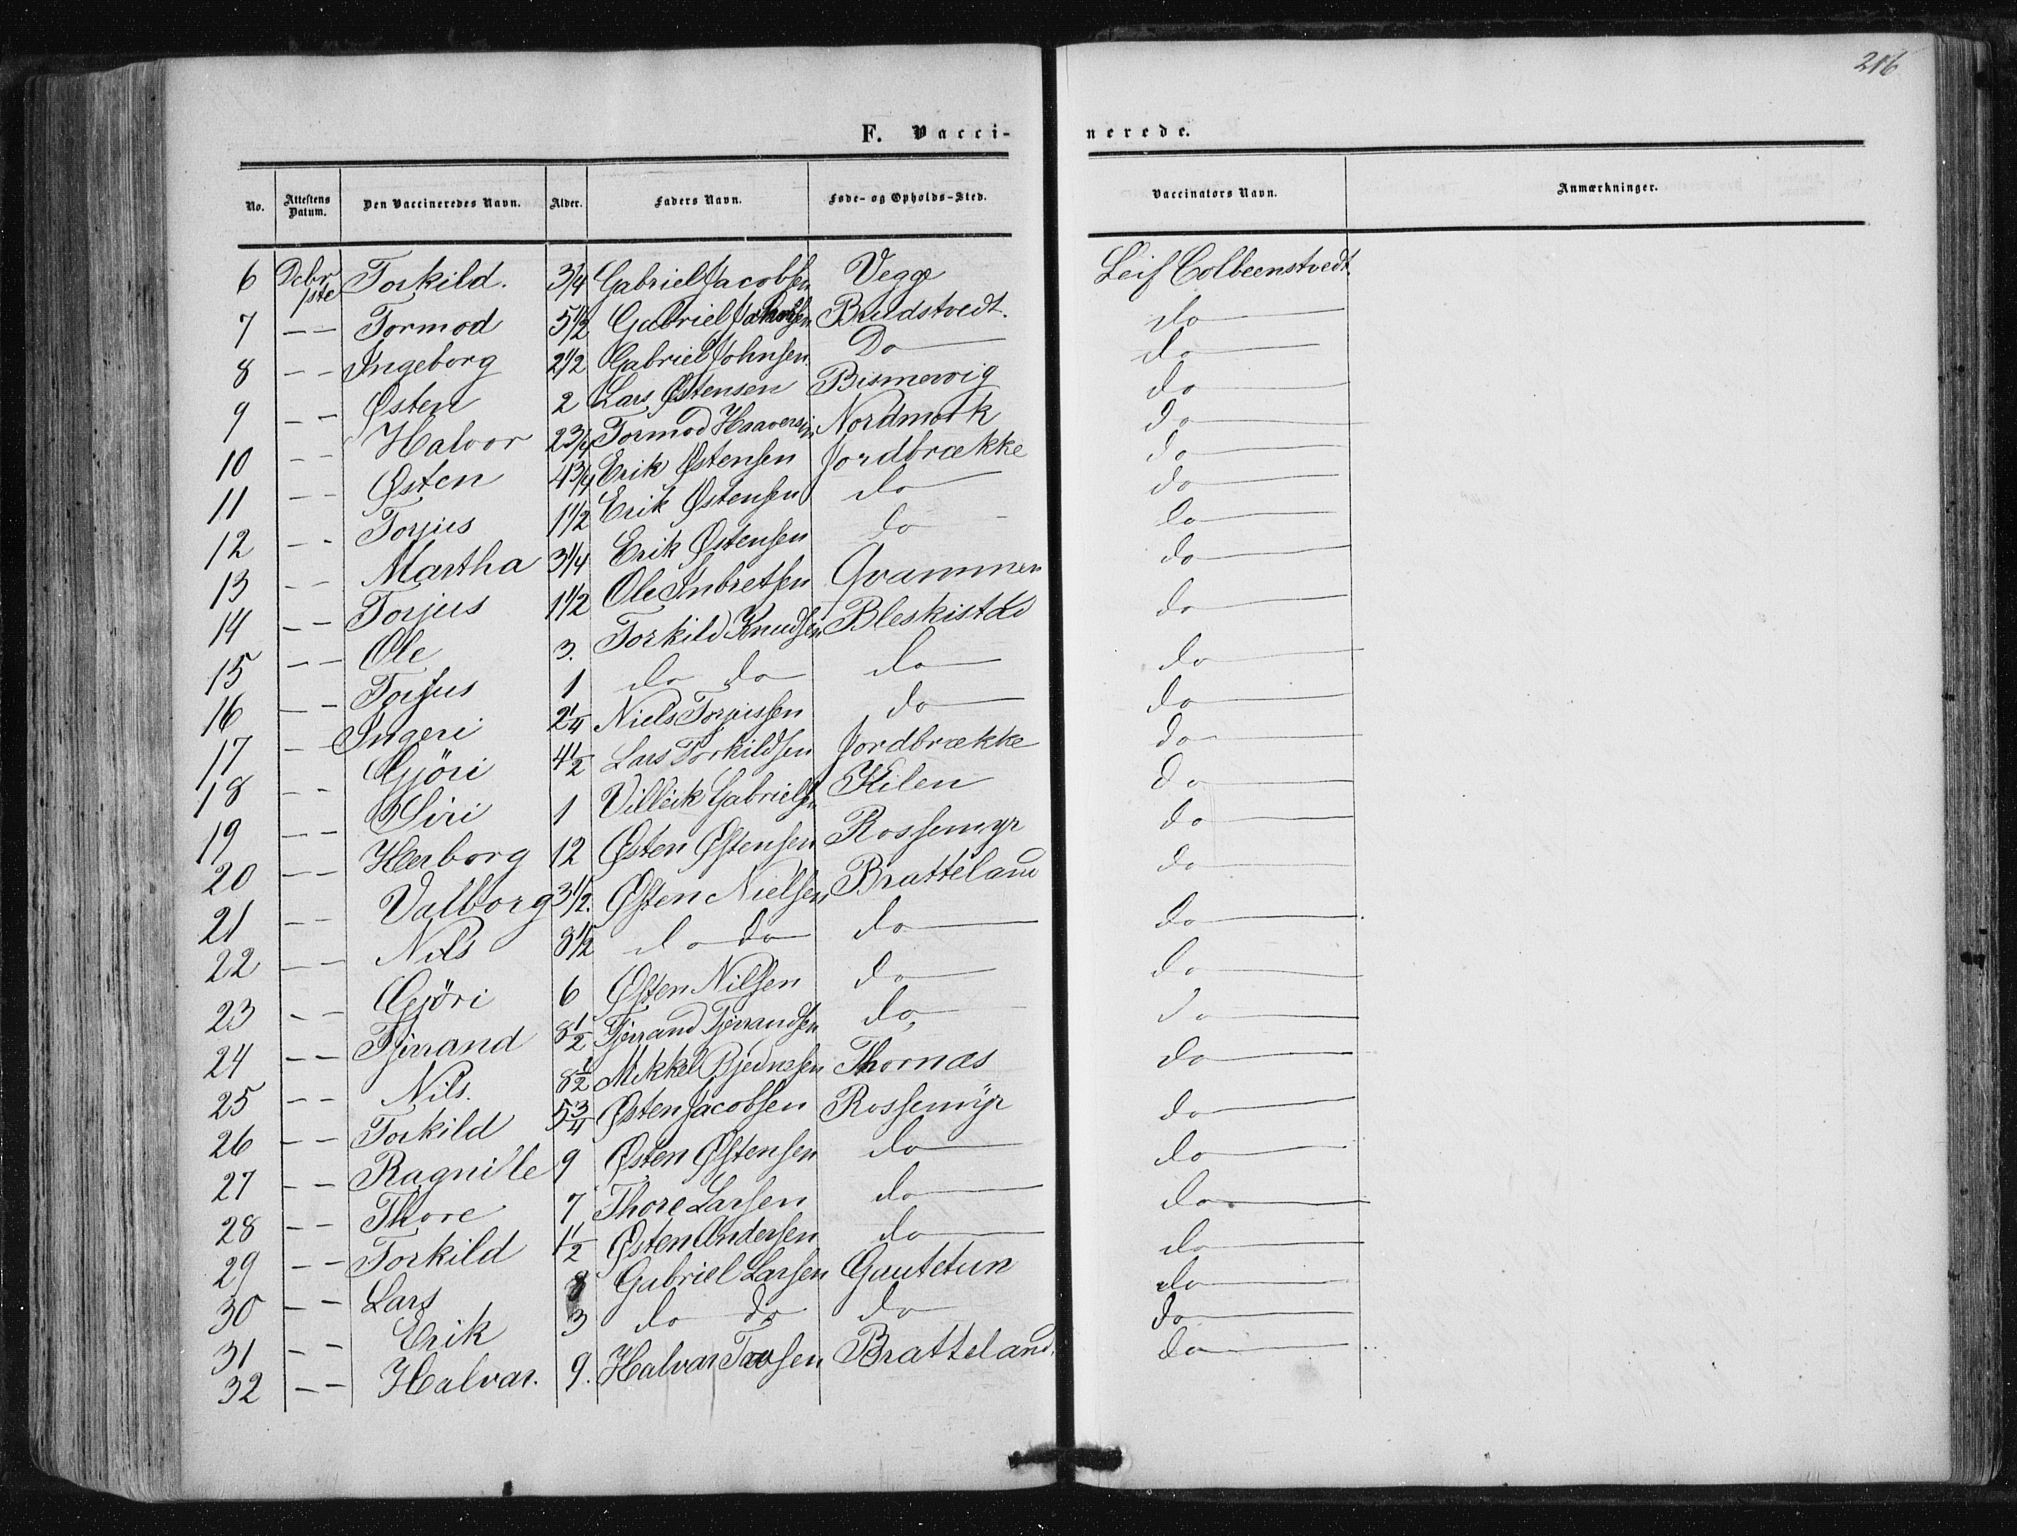 216
F. Vacci- nerede.
No. Attestens Datum. Den Vaccineredes Navn. Alder. Faders Navn. Føde- og Opholds-Sted. Vaccinators Navn. Anmærkninger.
6 Dcbr 1ste Torkild. 3 1/4 Gabriel Jacobsen Vegge Leif Colbeenstvedt
7 — — Tormod 5 1/2 Gabriel Johnsen Brudstvedt. do
8 — — Ingeborg 2 1/2 Gabriel Johnsen. Do do
9 — — Østen 2 Lars Østensen Bismervig do
10 — — Halvor 2 3/4 Tormod Haaversen Nordmork do
11 — — Østen 4 3/4 Erik Østensen Jordbrække do
12 — — Torjus 1 1/2 Erik Østensen do do
13 — — Martha 3 1/4 Erik Østensen do do
14 — — Torjus 1 1/2 Ole Inbretsen Qvammen do
15 — — Ole 3. Torkild Knudsen Bleskistad do
16 — — Torjus 1 do do do do
17 — — Ingeri 2 1/4 Niels Torjussen do do
18 — — Gjöri 4 1/2 Lars Torkildsen Jordbrække do
19 — — Siri 1 Villeik Gabrielsn Hilen do
20 — — Herborg 12 Østen Østensen Rossemyr do
21 — — Valborg 3 1/2. Østen Nielsen Bratteland do
22 — — Nils 8 1/2 do do do do
23 — — Gjöri 6 Østen Nilsen do do
24 — — Tjerrand 8 1/2 Tjerrand Tjerrandsen do do
25 — — Nils. 8 1/2 Mikkel Bjørnsen Thornæs do
26 — — Torkild 5 3/4 Østen Jacobsen Rossemyr do
27 — — Ragnille 9 Østen Østensen do do
28 — — Thore 7 Thore Larsen do do
29 — — Torkild 1 1/2 Østen Andersen do do
30 — — Lars 8 Gabriel Larsen Gautetun do
31 — — Erik 3 do do do do
32 — — Halvar. 9. Halvar Bratteland. do